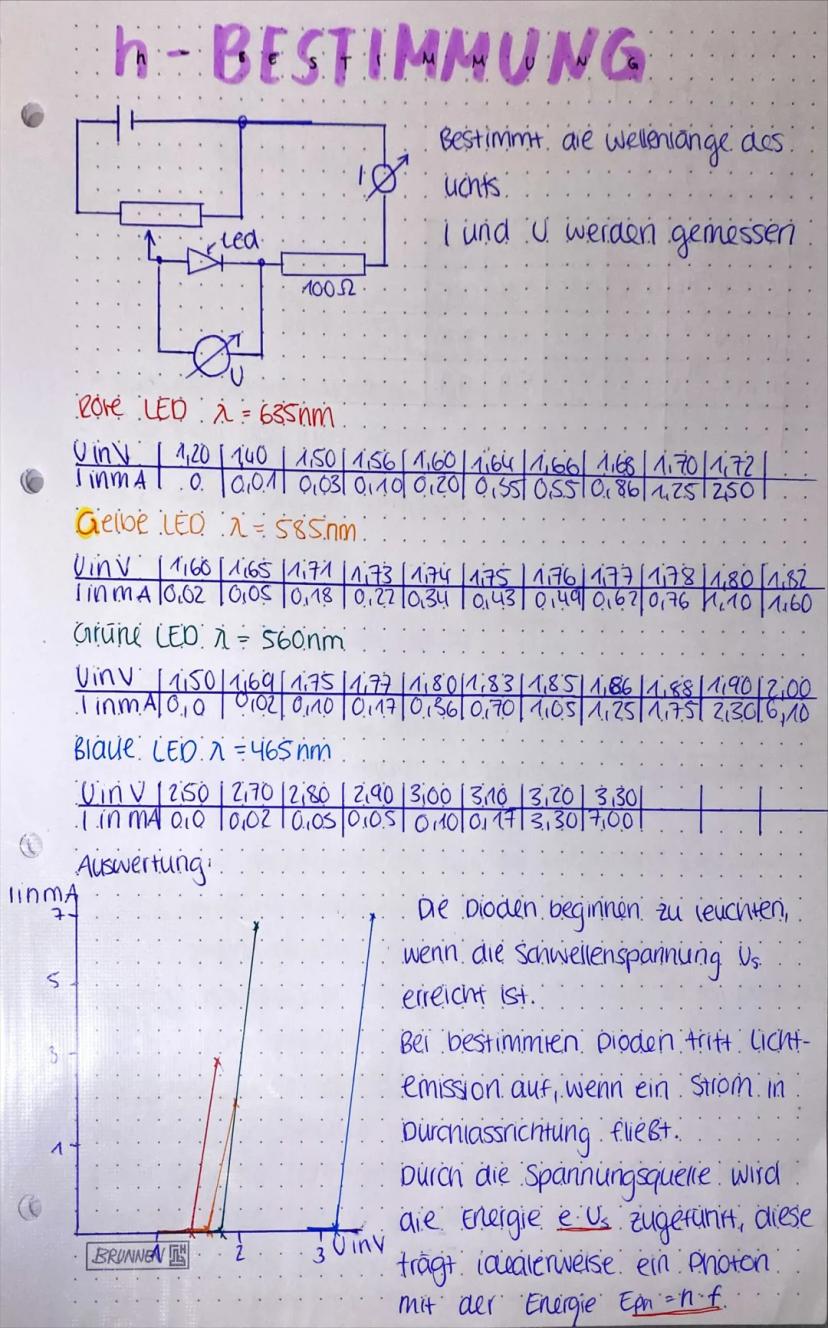 h-BESTIMMUNG
Bestimmt die Wellenlänge des
Lichts.
I und U werden gemessen
I
Led
100Ω
U
Rote LED λ = 635nm
U in V | 1,20 | 1,40 | 1,50 | 1,56 | 1,60 | 1,64 | 1,66 | 1,68 | 1,70 | 1,72
I in mA | 0 | 0,01 | 0,03 | 0,10 | 0,20 | 0,35 | 0,55 | 0,86 | 1,25 | 2,50
Gelbe LED λ = 585nm
U in V | 1,60 | 1,65 | 1,71 | 1,73 | 1,74 | 1,75 | 1,76 | 1,77 | 1,78 | 1,80 | 1,82
I in mA | 0,02 | 0,05 | 0,18 | 0,22 | 0,34 | 0,43 | 0,49 | 0,62 | 0,76 | 1,10 | 1,60
Grüne LED λ = 560nm
U in V | 1,50 | 1,69 | 1,75 | 1,77 | 1,80 | 1,83 | 1,85 | 1,86 | 1,88 | 1,90 | 2,00
I in mA | 0,0 | 0,02 | 0,10 | 0,17 | 0,36 | 0,70 | 1,05 | 1,25 | 1,75 | 2,30 | 6,10
Blaue LED λ = 465nm
U in V | 2,50 | 2,70 | 2,80 | 2,90 | 3,00 | 3,10 | 3,20 | 3,30
I in mA | 0,0 | 0,02 | 0,05 | 0,05 | 0,10 | 0,17 | 3,30 | 7,00
Auswertung:
I in mA
7
5
3
1
1 2 3 U in V
BRUNNEN
Die Dioden beginnen zu leuchten,
wenn die Schwellenspannung Us
erreicht ist.
Bei bestimmten Dioden tritt Licht-
emission auf, wenn ein Strom in
Durchlassrichtung fließt.
Durch die Spannungsquelle wird
die Energie e·Us zugeführt, diese
trägt idealerweise ein Photon
mit der Energie Eph = h·f.